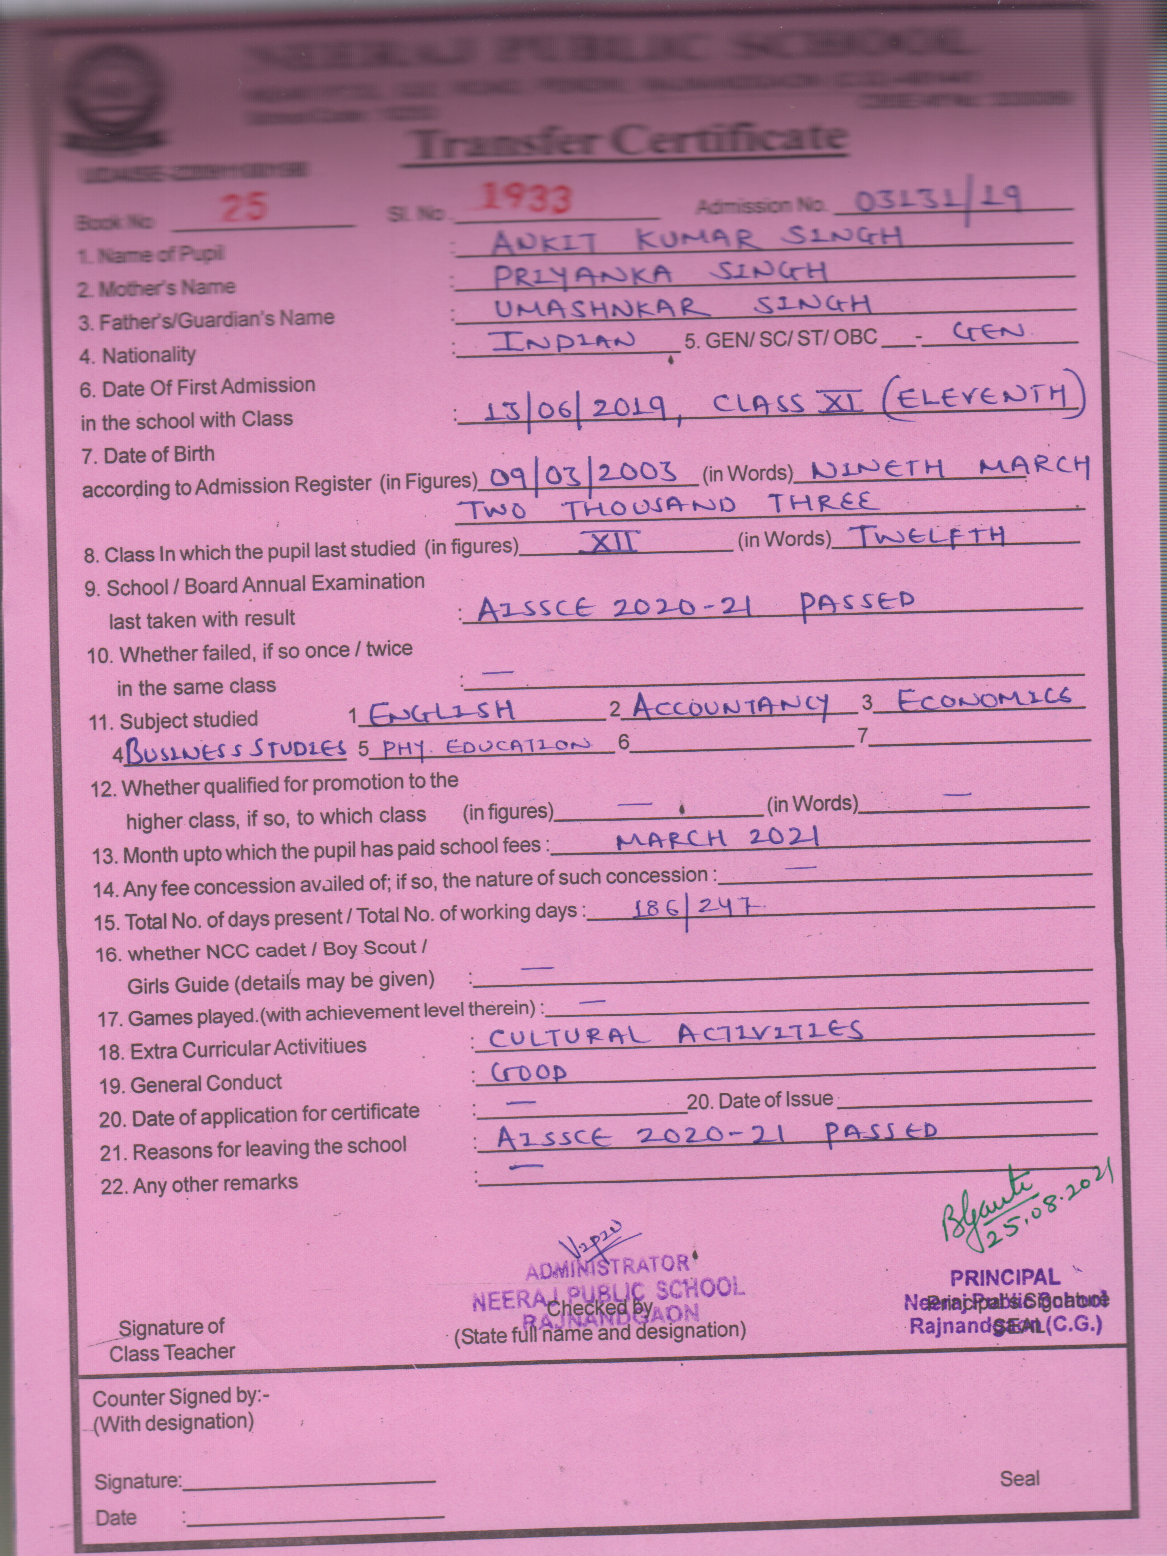 NEERAJ PUBLIC SCHOOL
Transfer Certificate
Book No 25 Sl. No. 1933 Admission No. 03131/19
1. Name of Pupil : ANKIT KUMAR SINGH
2. Mother's Name : PRIYANKA SINGH
3. Father's/Guardian's Name : UMASHNKAR SINGH
4. Nationality : INDIAN 5. GEN/ SC/ ST/ OBC - GEN
6. Date Of First Admission
in the school with Class : 13/06/2019, CLASS XI (ELEVENTH)
7. Date of Birth
according to Admission Register (in Figures) 09/03/2003 (in Words) NINETH MARCH
TWO THOUSAND THREE
8. Class In which the pupil last studied (in figures) XII (in Words) TWELFTH
9. School / Board Annual Examination
last taken with result : AISSCE 2020-21 PASSED
10. Whether failed, if so once / twice
in the same class : —
11. Subject studied 1 ENGLISH 2 ACCOUNTANCY 3 ECONOMICS
4 BUSINESS STUDIES 5 PHY. EDUCATION 6 7
12. Whether qualified for promotion to the
higher class, if so, to which class (in figures) — (in Words) —
13. Month upto which the pupil has paid school fees : MARCH 2021
14. Any fee concession availed of; if so, the nature of such concession : —
15. Total No. of days present / Total No. of working days : 186/247
16. whether NCC cadet / Boy Scout /
Girls Guide (details may be given) : —
17. Games played.(with achievement level therein) : —
18. Extra Curricular Activitiues : CULTURAL ACTIVITIES
19. General Conduct : GOOD
20. Date of application for certificate : — 20. Date of Issue
21. Reasons for leaving the school : AISSCE 2020-21 PASSED
22. Any other remarks : —
25.08.2021
ADMINISTRATOR PRINCIPAL
NEERAJ PUBLIC SCHOOL Neeraj Public School
Checked by Principal's Signature
RAJNANDGAON Rajnandgaon (C.G.)
SEAL
Signature of (State full name and designation)
Class Teacher
Counter Signed by:-
(With designation)
Signature:
Seal
Date :